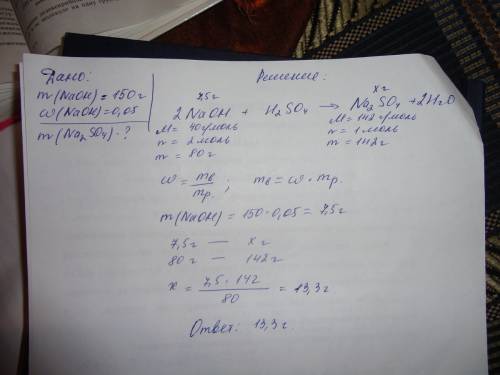 Дано:
m(NaOH) = 150 г
ω(NaOH) = 0,05
m(Na₂SO₄) - ?
Решение:
7,5 г x г
2NaOH + H₂SO₄ → Na₂SO₄ + 2H₂O
M = 40 г/моль M = 142 г/моль
n = 2 моль n = 1 моль
m = 80 г m = 142 г
ω = mв/mр. ; mв = ω · mр.
m(NaOH) = 150 · 0,05 = 7,5 г
7,5 г — x г
80 г — 142 г
x = 7,5 · 142 / 80 = 13,3 г
Ответ: 13,3 г.